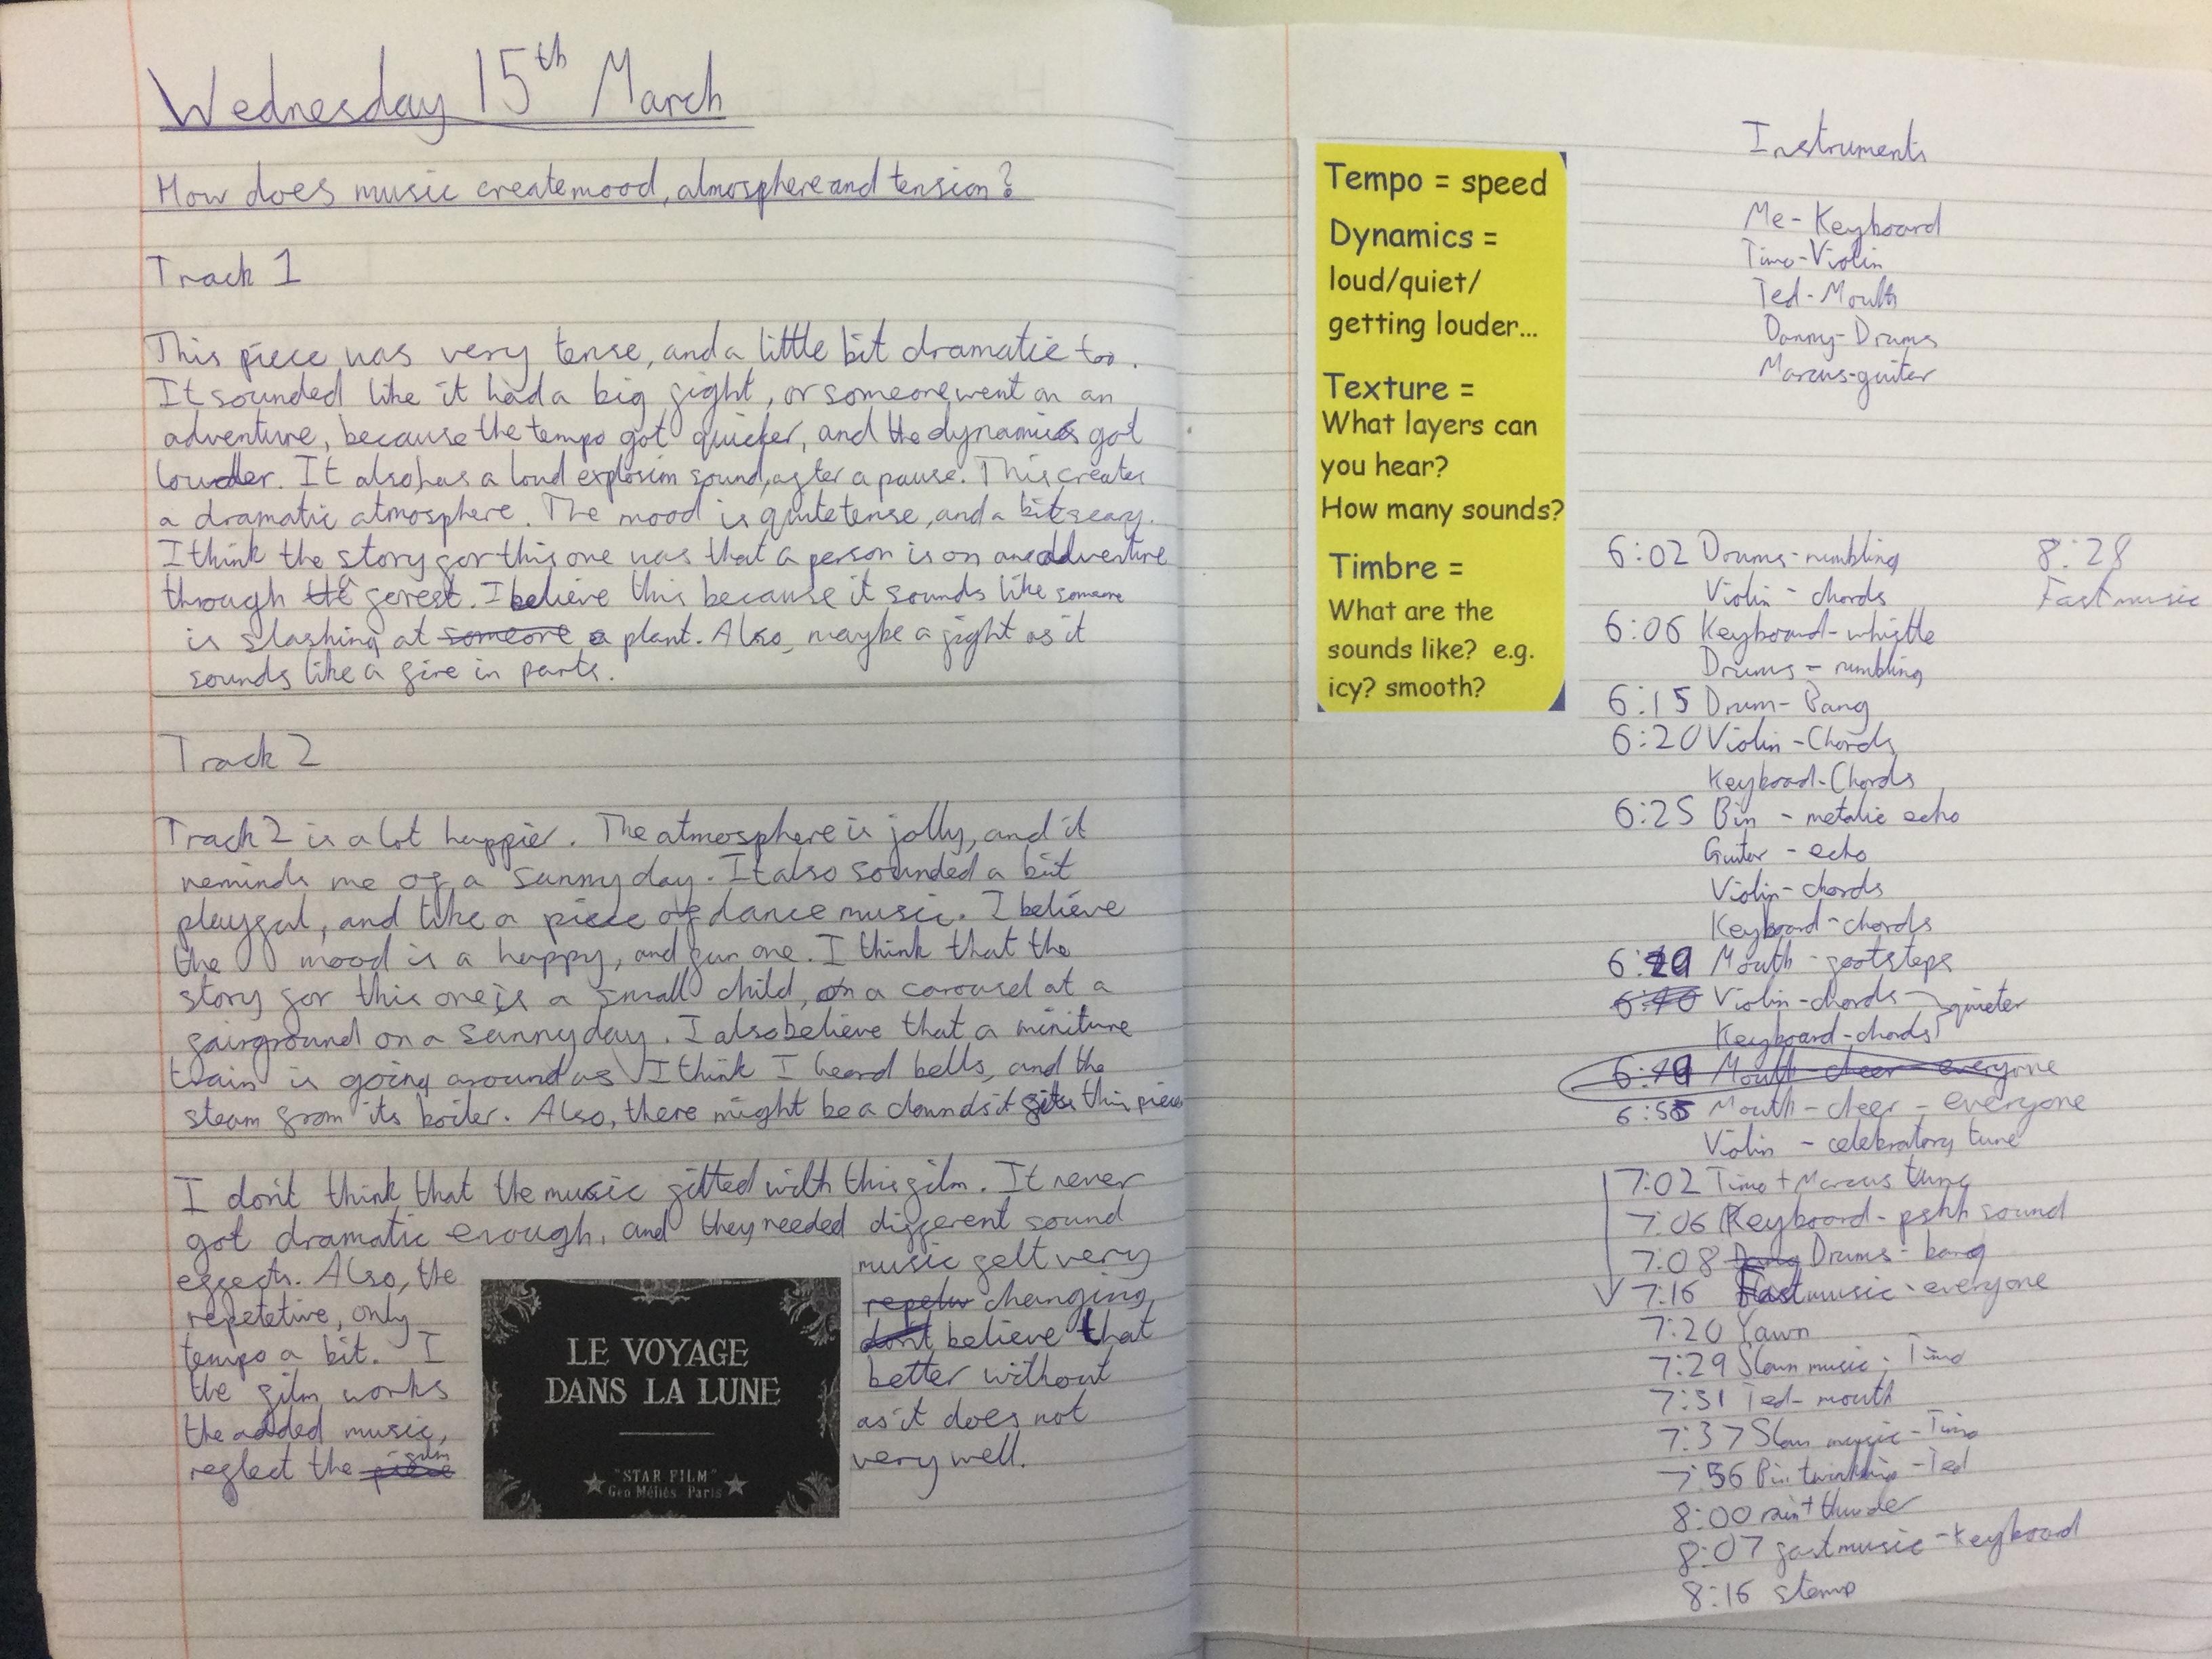 Wednesday 15th March
How does music create mood, atmosphere and tension?
Track 1
This piece was very tense, and a little bit dramatic too.
It sounded like it had a big fight, or someone went on an
adventure, because the tempo got quicker, and the dynamics got
louder. It also has a loud explosion sound, after a pause. This creates
a dramatic atmosphere. The mood is quite tense, and a bit scary.
I think the story for this one was that a person is on an adventure
through the a forest. I believe this because it sounds like someone
is slashing at someone a plant. Also, maybe a fight as it
sounds like a fire in parts.
Track 2
Track 2 is a lot happier. The atmosphere is jolly, and it
reminds me of a sunny day. It also sounded a bit
playful, and like a piece of dance music. I believe
the mood is a happy, and fun one. I think that the
story for this one is a small child, on a carousel at a
fairground on a sunny day. I also believe that a miniture
train is going around as I think I heard bells, and the
steam from its boiler. Also, there might be a clown as it fits this piece
I don't think that the music fitted with this film. It never
got dramatic enough, and they needed different sound
effects. Also, the music felt very
repetetive, only repetiv changing
tempo a bit. I don't believe that
the film works better without
the added music, as it does not
reflect the piece film very well.
LE VOYAGE
DANS LA LUNE
"STAR FILM"
Geo Méliès Paris
Tempo = speed
Dynamics =
loud/quiet/
getting louder...
Texture =
What layers can
you hear?
How many sounds?
Timbre =
What are the
sounds like? e.g.
icy? smooth?
Instruments
Me - Keyboard
Timo - Violin
Ted - Mouth
Danny - Drums
Marcus - guiter
6:02 Drums - rumbling
Violin - chords
6:06 Keyboard - whistle
Drums - rumbling
6:15 Drum - Bang
6:20 Violin - Chords
Keyboad - Chords
6:25 Bin - metalic echo
Guiter - echo
Violin - chords
Keyboard - chords
Mouth - footsteps
6:40 Violin - chords quieter
Keyboard - chords
6:49 Mouth - cheer - everyone
6:55 Mouth - cheer - everyone
Violin - celebratory tune
7:02 Timo + Marcus thing
7:06 Keyboard - pshh sound
7:08 Drums - bang
7:16 Fast music - everyone
7:20 Yawn
7:29 Slow music - Timo
7:31 Ted - mouth
7:37 Slow music - Timo
7:56 Bin twinkling - Ted
8:00 rain + thunder
8:07 fast music - Keyboard
8:16 stomp
8:28
Fast music